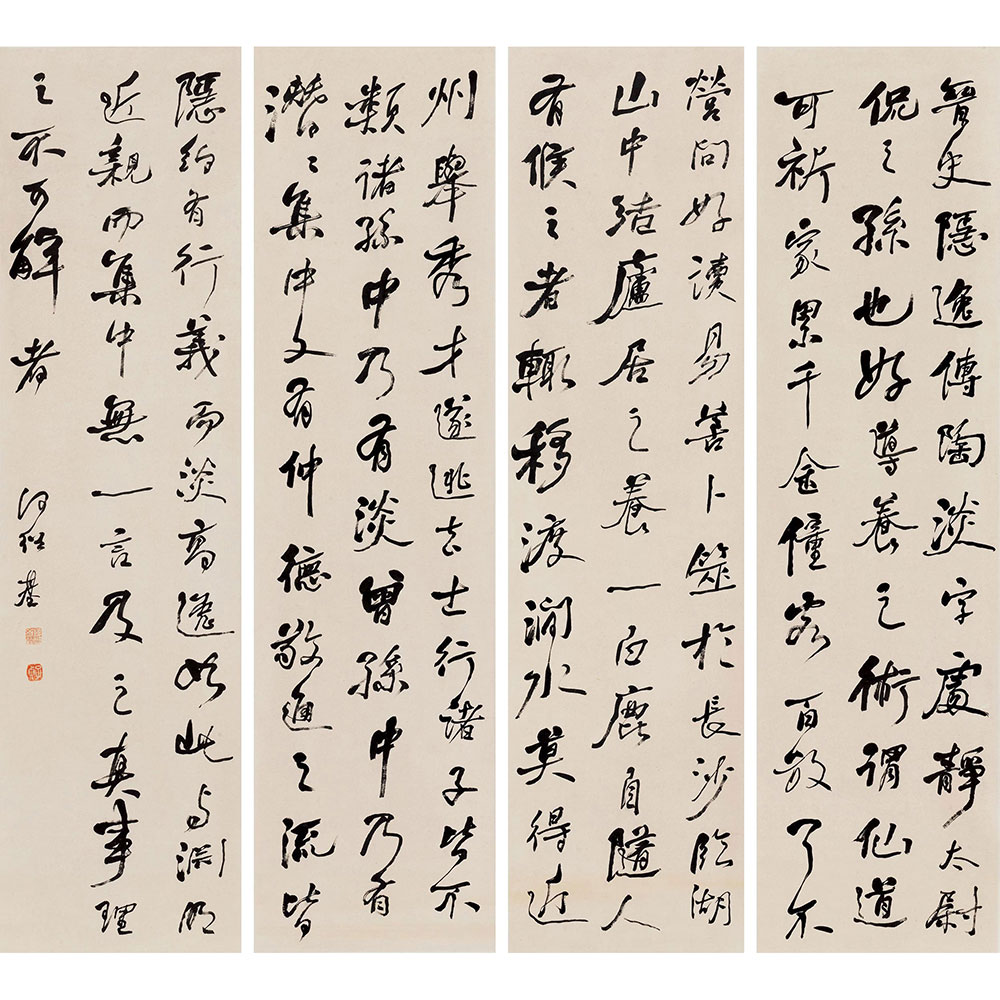 晉史隱逸傳陶淡字處靜太尉
侃之孫也好導養之術謂仙道
可祈家累千金僮客百數了不
營問好讀易善卜筮於長沙臨湖
山中結廬居之養一白鹿自隨人
有候之者輒移渡澗水莫得近
州舉秀才遂逃去士行諸子皆不
類諸孫中乃有淡曾孫中乃有
潛潛集中又有仲德敬通之流皆
隱約有行義而淡高遠如此與淵明
近親而集中無一言及之真事理
之不可解者
何紹基